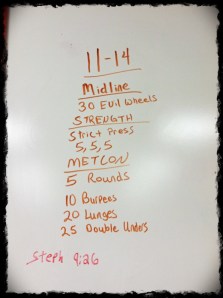 11-14
Midline
30 Evil Wheels
STRENGTH
Strict Press
5, 5, 5
METCON
5 Rounds
10 Burpees
20 Lunges
25 Double Unders
Steph 9:26